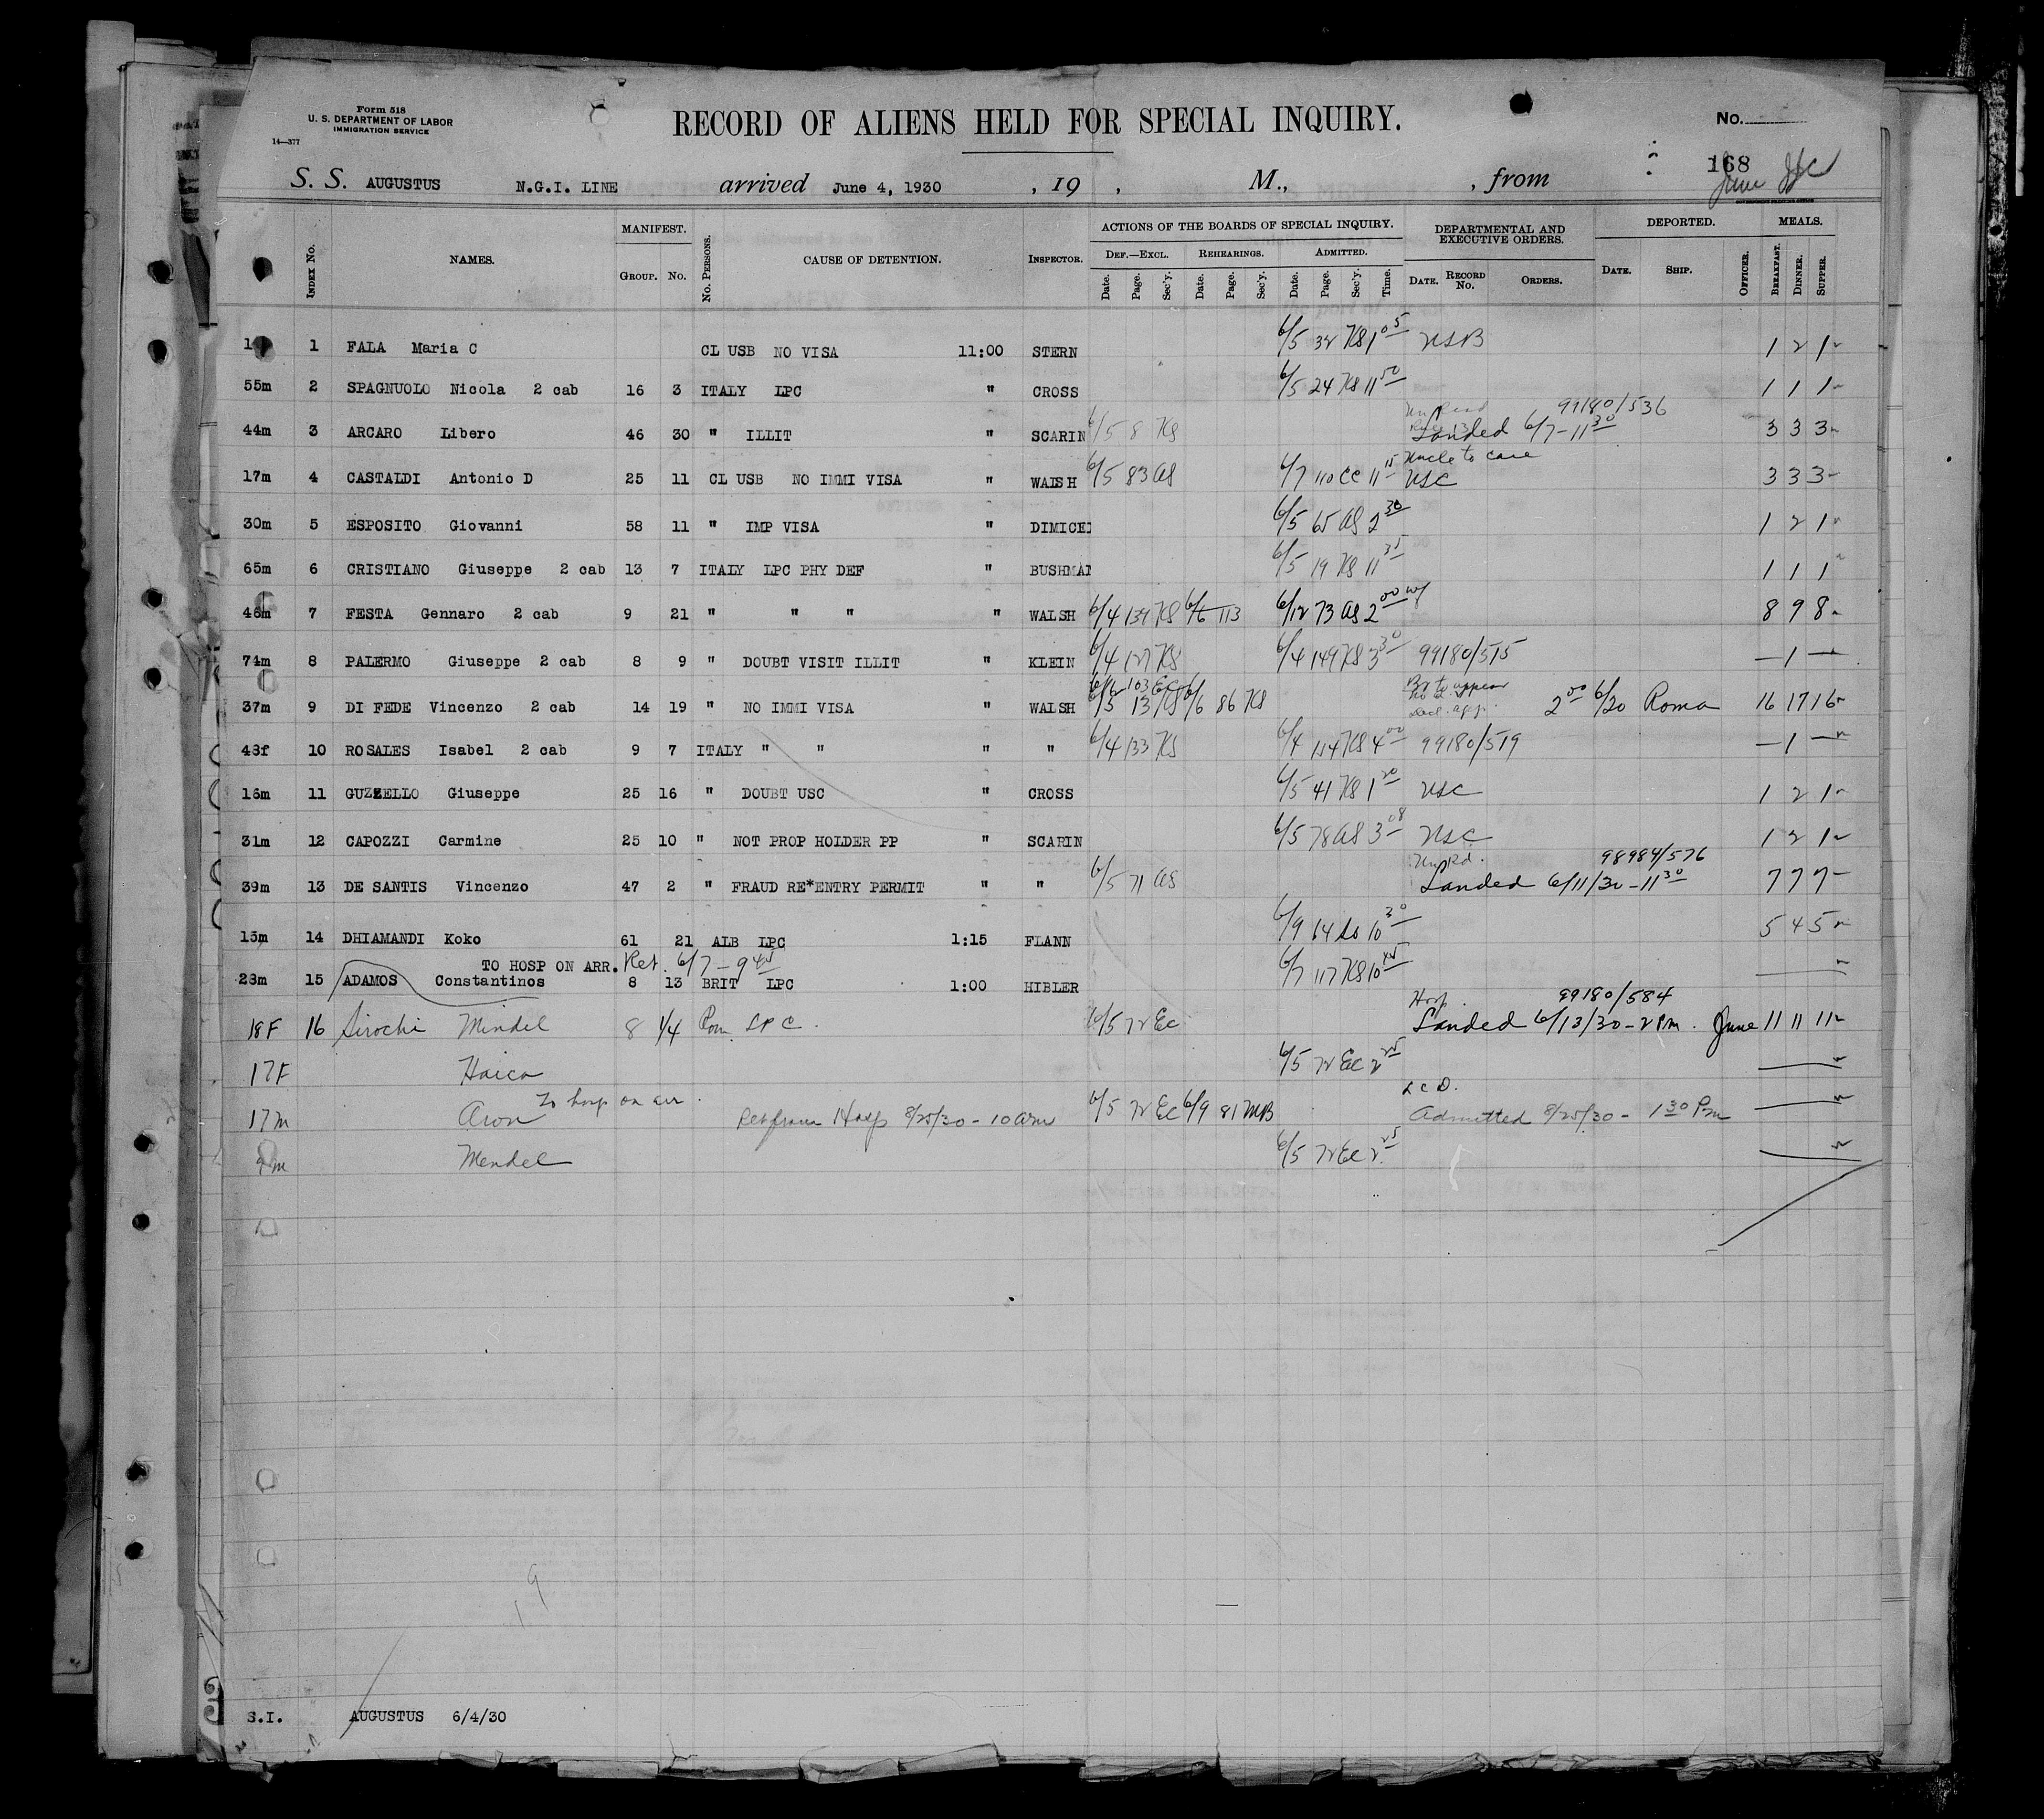 Form 518
U. S. DEPARTMENT OF LABOR
IMMIGRATION SERVICE
14—377
RECORD OF ALIENS HELD FOR SPECIAL INQUIRY.
No.
168
S. S. AUGUSTUS N.G.I. LINE arrived June 4, 1930 , 19 , M., , from
MANIFEST. ACTIONS OF THE BOARDS OF SPECIAL INQUIRY. DEPARTMENTAL AND EXECUTIVE ORDERS. DEPORTED. MEALS.
Index No. NAMES. Group. No. No. Persons. CAUSE OF DETENTION. Inspector. Def.—Excl. Rehearings. Admitted.
Date. Page. Sec'y. Date. Page. Sec'y. Date. Page. Sec'y. Time. Date. Record No. Orders. Date. Ship. Officer. Breakfast. Dinner. Supper.
1 FALA Maria C CL USB NO VISA 11:00 STERN 6/5 32 KS 1 05 USB 1 2 1
55m 2 SPAGNUOLO Nicola 2 cab 16 3 ITALY LPC " CROSS 6/5 24 KS 11 50 1 1 1
99180/536
44m 3 ARCARO Libero 46 30 " ILLIT " SCARIN 6/5 8 KS Landed 6/7-11 30 3 3 3
Uncle to care
17m 4 CASTALDI Antonio D 25 11 CL USB NO IMMI VISA " WALSH 6/5 83 AS 6/7 110 CC 11 15 USC 3 3 3
30m 5 ESPOSITO Giovanni 58 11 " IMP VISA " DIMICEI 6/5 65 AS 2 30 1 2 1
65m 6 CRISTIANO Giuseppe 2 cab 13 7 ITALY LPC PHY DEF " BUSHMAN 6/5 19 KS 11 35 1 1 1
46m 7 FESTA Gennaro 2 cab 9 21 " " " " WALSH 6/4 139 KS 6/6 113 6/12 73 AS 2 00 8 9 8
74m 8 PALERMO Giuseppe 2 cab 8 9 " DOUBT VISIT ILLIT " KLEIN 6/4 127 KS 6/4 149 KS 3 30 99180/515 — 1 —
6/6 103 EC
37m 9 DI FEDE Vincenzo 2 cab 14 19 " NO IMMI VISA " WALSH 6/5 13 KS 6/6 86 KS 2 00 6/20 Roma 16 17 16
48f 10 ROSALES Isabel 2 cab 9 7 ITALY " " " " 6/4 133 KS 6/4 154 KS 4 00 99180/519 — 1 —
16m 11 GUZZELLO Giuseppe 25 16 " DOUBT USC " CROSS 6/5 41 KS 1 20 USC 1 2 1
31m 12 CAPOZZI Carmine 25 10 " NOT PROP HOLDER PP SCARIN 6/5 78 AS 3 08 USC 1 2 1
98984/576
39m 13 DE SANTIS Vincenzo 47 2 " FRAUD RE*ENTRY PERMIT " " 6/5 71 AS Landed 6/11/30-11 30 7 7 7
15m 14 DHIAMANDI Koko 61 21 ALB LPC 1:15 FLANN 6/9 64 10 30 5 4 5
TO HOSP ON ARR. Ret. 6/7-9 45
28m 15 ADAMOS Constantinos 8 13 BRIT LPC 1:00 HIBLER 6/7 117 KS 10 45
Hosp. 99180/584
18F 16 Sirochi Mindel 8 1/4 Rom LPC. 6/5 72 EC Landed 6/13/30-2 Pm. June 11 11 11
17F Haica 6/5 72 EC 2 25
To hosp on arr. L C D.
17m Aron Ret from Hosp 8/25/30-10 am 6/5 72 EC 6/9 81 MB Admitted 8/25/30- 1 30 Pm
9m Mendel 6/5 72 EC 2 25
S.I. AUGUSTUS 6/4/30